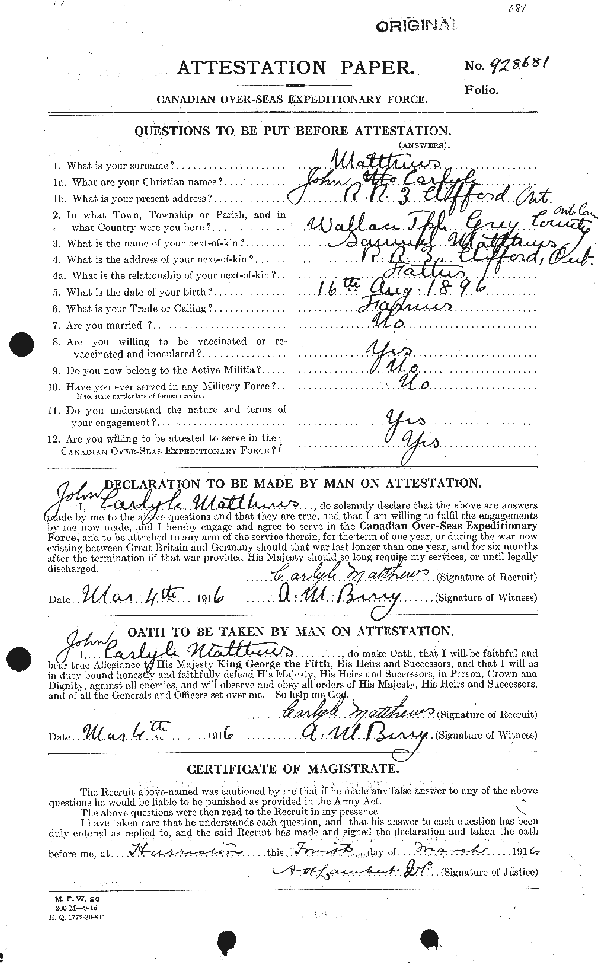 181
ORIGINAL
ATTESTATION PAPER.
No. 928681
Folio.
CANADIAN OVER-SEAS EXPEDITIONARY FORCE.
QUESTIONS TO BE PUT BEFORE ATTESTATION.
(ANSWERS).
1. What is your surname? Matthews
1a. What are your Christian names? John Carlyle
1b. What is your present address? R.R. 3 Clifford Ont.
2. In what Town, Township or Parish, and in
what Country were you born? Wallace Tp. Grey County Ont Can
3. What is the name of your next-of-kin? Samuel Matthews
4. What is the address of your next-of-kin? R.R. 3, Clifford, Ont.
4a. What is the relationship of your next-of-kin? Father
5. What is the date of your birth? 16th Aug 1896
6. What is your Trade or Calling? Farmer
7. Are you married? No
8. Are you willing to be vaccinated or re-
vaccinated and inoculated? Yes
9. Do you now belong to the Active Militia? No
10. Have you ever served in any Military Force? No
If so, state particulars of former service.
11. Do you understand the nature and terms of
your engagement? Yes
12. Are you willing to be attested to serve in the
CANADIAN OVER-SEAS EXPEDITIONARY FORCE? Yes
DECLARATION TO BE MADE BY MAN ON ATTESTATION.
I, John Carlyle Matthews, do solemnly declare that the above are answers
made by me to the above questions and that they are true, and that I am willing to fulfil the engagements
by me now made, and I hereby engage and agree to serve in the Canadian Over-Seas Expeditionary
Force, and to be attached to any arm of the service therein, for the term of one year, or during the war now
existing between Great Britain and Germany should that war last longer than one year, and for six months
after the termination of that war provided His Majesty should so long require my services, or until legally
discharged.
Carlyle Matthews (Signature of Recruit)
Date Mar 4th 1916 A. M. Birry (Signature of Witness)
OATH TO BE TAKEN BY MAN ON ATTESTATION.
I, John Carlyle Matthews, do make Oath, that I will be faithful and
bear true Allegiance to His Majesty King George the Fifth, His Heirs and Successors, and that I will as
in duty bound honestly and faithfully defend His Majesty, His Heirs and Successors, in Person, Crown and
Dignity, against all enemies, and will observe and obey all orders of His Majesty, His Heirs and Successors,
and of all the Generals and Officers set over me. So help me God.
Carlyle Matthews (Signature of Recruit)
Date Mar 4th 1916 A. M. Birry (Signature of Witness)
CERTIFICATE OF MAGISTRATE.
The Recruit above-named was cautioned by me that if he made any false answer to any of the above
questions he would be liable to be punished as provided in the Army Act.
The above questions were then read to the Recruit in my presence.
I have taken care that he understands each question, and that his answer to each question has been
duly entered as replied to, and the said Recruit has made and signed the declaration and taken the oath
before me, at this Fourth day of March 1916
(Signature of Justice)
M. F. W. 23